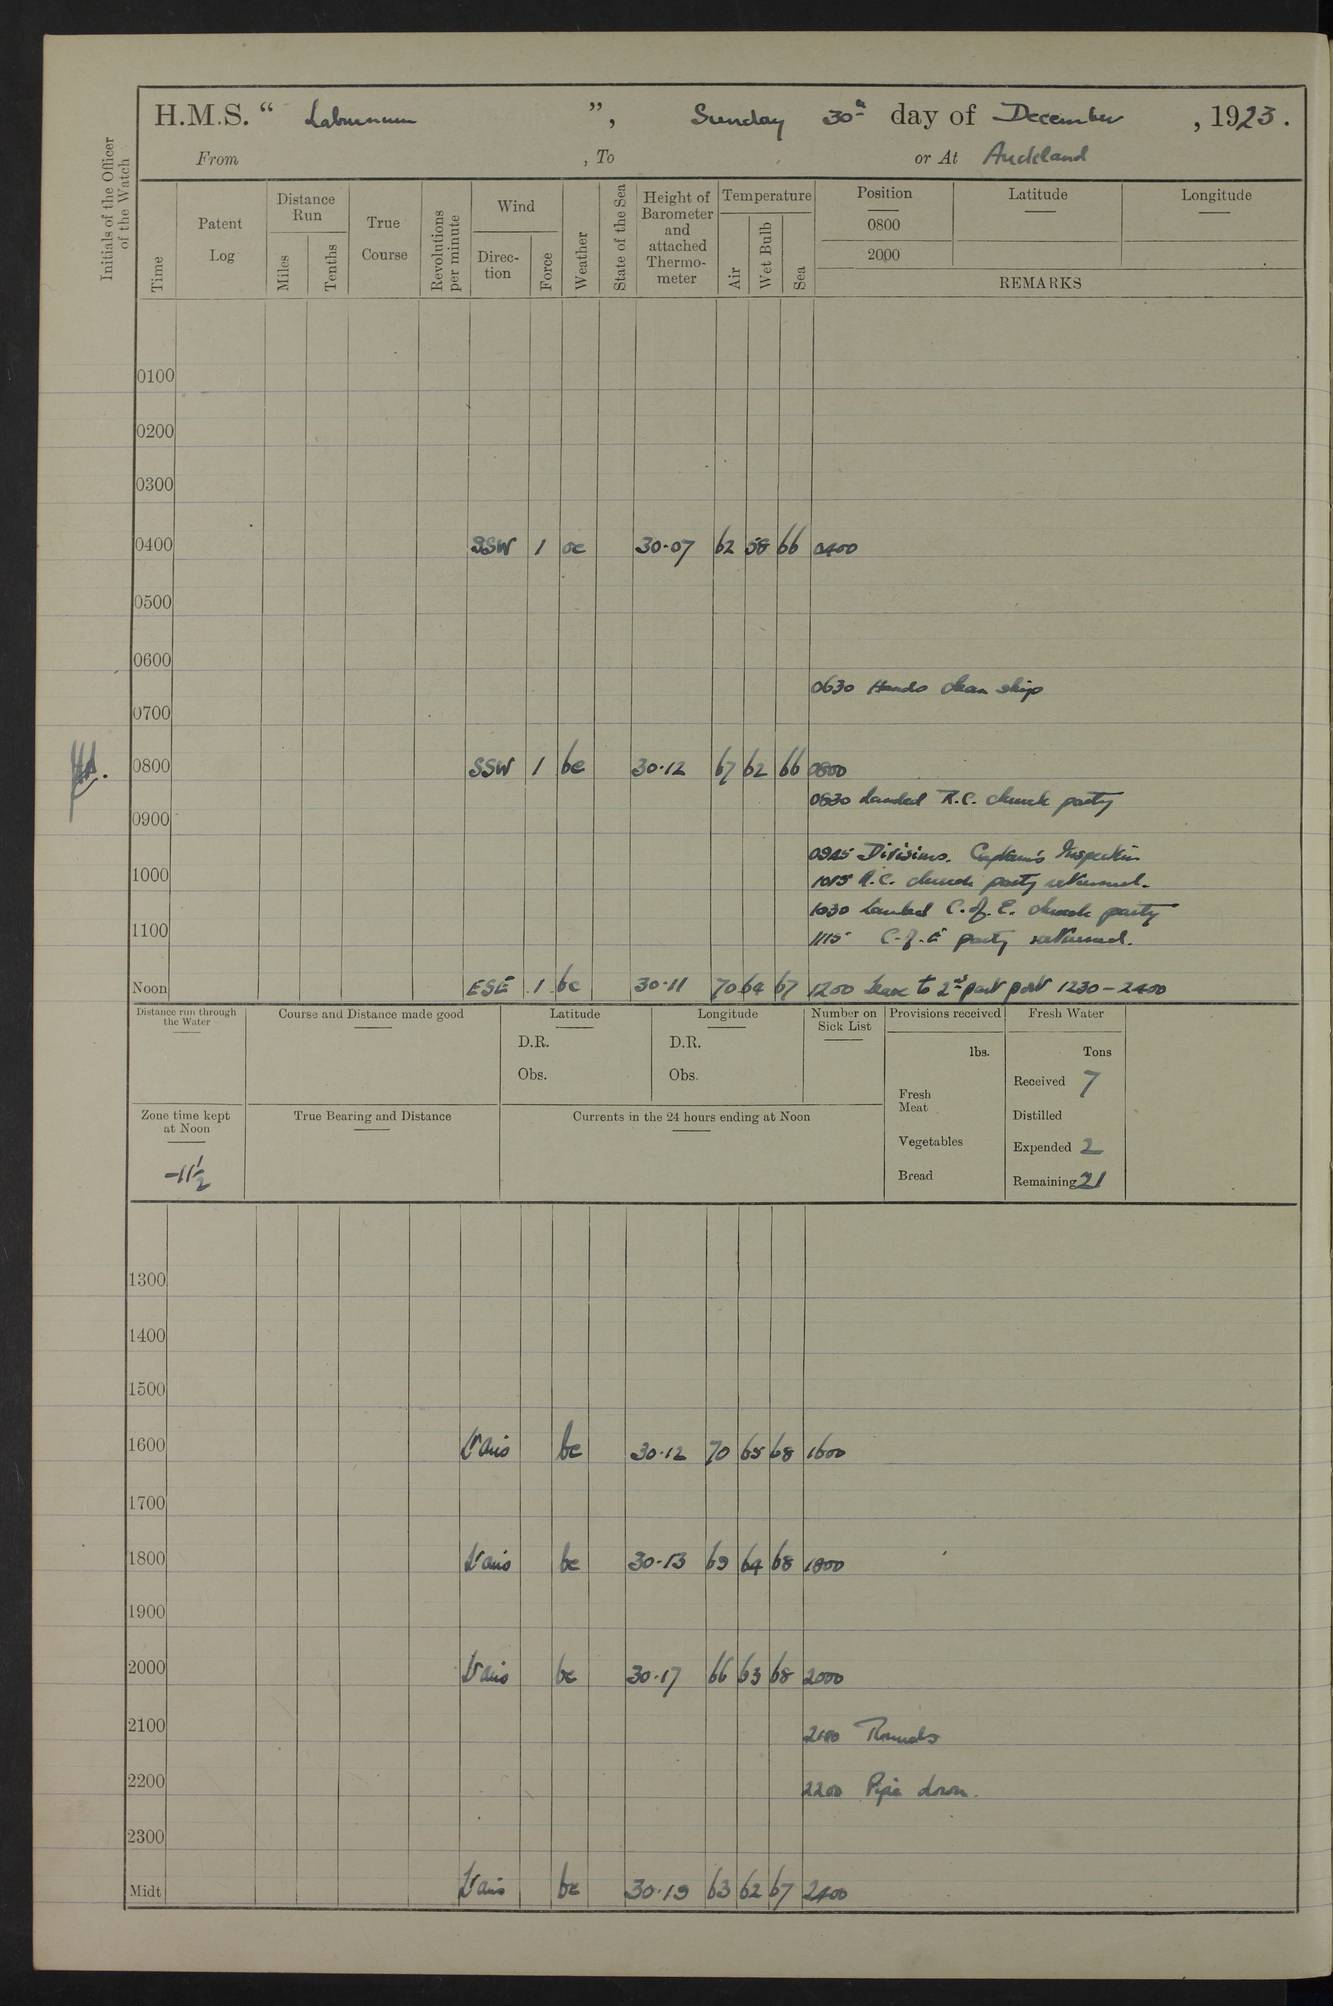 H.M.S. “ Laburnum ”, Sunday 30th day of December, 1923.
From , To or At Auckland
Initials of the Officer of the Watch
Time
Patent Log
Distance Run
Miles
Tenths
True Course
Revolutions per minute
Wind
Direc-tion
Force
Weather
State of the Sea
Height of Barometer and attached Thermo-meter
Temperature
Air
Wet Bulb
Sea
Position
0800
2000
Latitude
Longitude
REMARKS
0100
0200
0300
0400 SSW 1 oc 30·07 62 58 66 0400
0500
0600
0630 Hands clean ship
0700
0800 SSW 1 bc 30·12 67 62 66 0800
0830 Landed R.C. church party
0900
0945 Divisions. Captain's Inspection
1000
1015 R.C. church party returned.
1030 Landed C. of. E. church party
1100
1115 C. of. E party returned.
Noon ESE 1 bc 30·11 70 64 67 1200 Leave to 2nd part port 1230 – 2400
Distance run through the Water
Course and Distance made good
Latitude
D.R.
Obs.
Longitude
D.R.
Obs.
Number on Sick List
Provisions received
lbs.
Fresh Meat
Vegetables
Bread
Fresh Water
Tons
Received 7
Distilled
Expended 2
Remaining 21
Zone time kept at Noon
-11½
True Bearing and Distance
Currents in the 24 hours ending at Noon
1300
1400
1500
1600 Vais bc 30·12 70 65 68 1600
1700
1800 Vais bc 30·13 69 64 68 1800
1900
2000 Vais bc 30·17 66 63 68 2000
2100
2100 Rounds
2200
2200 Pipe down.
2300
Midt Vais bc 30·19 63 62 67 2400